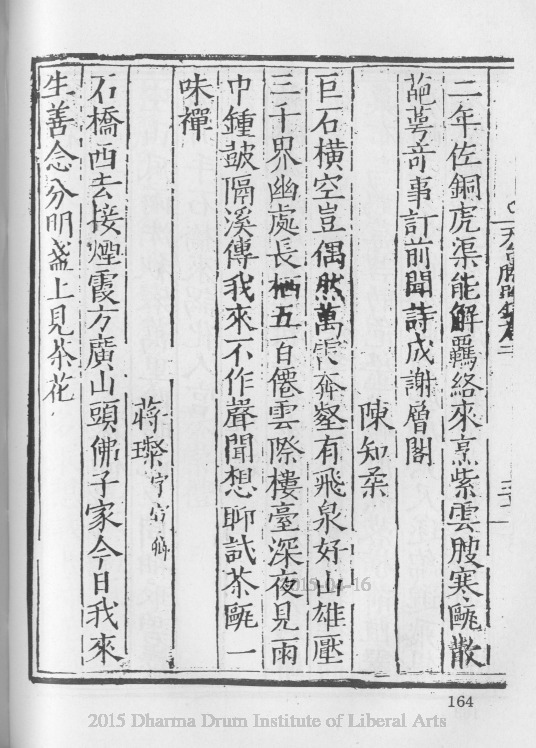 二年佐銅虎渠能解羈絡來烹紫雲腴寒甌散
葩萼奇事訂前聞詩成謝層閣
陳知柔
巨石橫空豈偶然萬雷奔壑有飛泉好山雄壓
三千界幽處長栖五百僊雲際樓臺深夜見雨
中鍾鼓隔溪傳我來不作聲聞想聊試茶甌一
味禪
蔣璨
石橋西去接煙霞方廣山頭佛子家今日我來
生善念分明盞上見茶花
164
2015-04-16
2015 Dharma Drum Institute of Liberal Arts